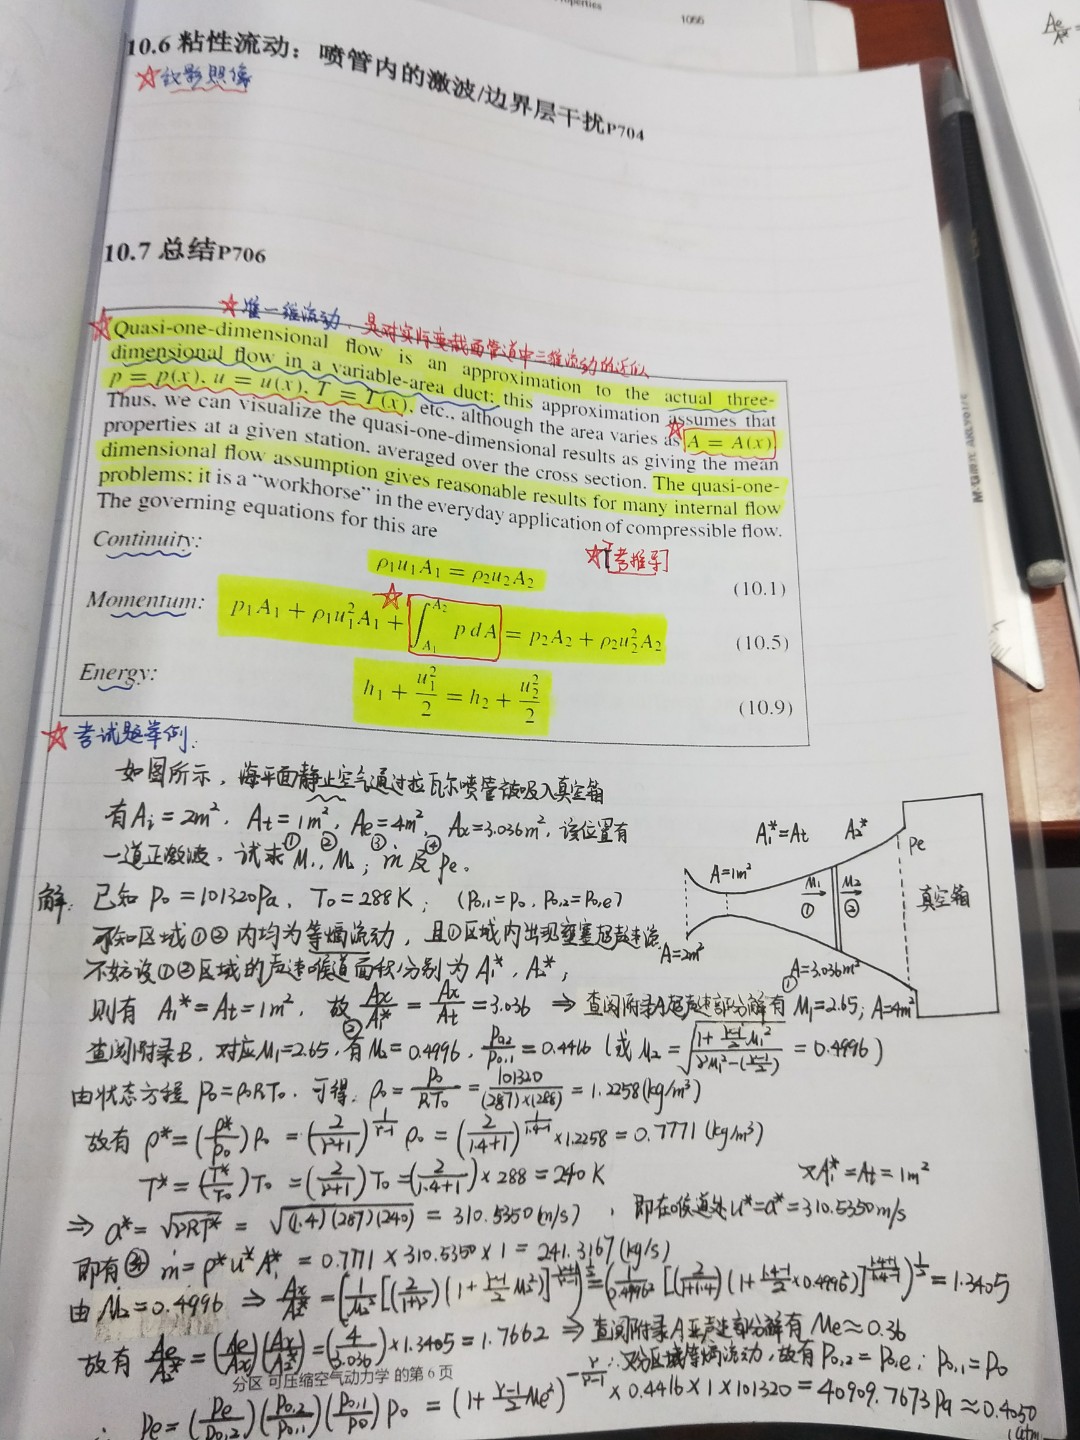 1066
10.6 粘性流动：喷管内的激波/边界层干扰P704
☆纹影照像
10.7 总结P706
☆准一维流动、是对实际变截面管道中三维流动的近似
Quasi-one-dimensional flow is an approximation to the actual three-
dimensional flow in a variable-area duct; this approximation assumes that
p = p(x), u = u(x), T = T(x), etc., although the area varies as A = A(x)
Thus, we can visualize the quasi-one-dimensional results as giving the mean
properties at a given station, averaged over the cross section. The quasi-one-
dimensional flow assumption gives reasonable results for many internal flow
problems; it is a “workhorse” in the everyday application of compressible flow.
The governing equations for this are
☆[考推导]
Continuity:
ρ₁u₁A₁ = ρ₂u₂A₂ (10.1)
Momentum:
p₁A₁ + ρ₁u₁²A₁ + ∫_{A₁}^{A₂} p dA = p₂A₂ + ρ₂u₂²A₂ (10.5)
Energy:
h₁ + u₁²/2 = h₂ + u₂²/2 (10.9)
☆考试题举例:
如图所示，海平面静止空气通过拉瓦尔喷管被吸入真空箱
有Ai=2m², At=1m², Ae=4m², Ax=3.036m², 该位置有
一道正激波。试求①M₁, ②M₂; ③ṁ 及④pe。
A₁*=At A₂* pe
A=1m²
M₁ M₂
① ②
真空箱
A=2m²
A=3.036m²
A=4m²
解: 已知 P₀=101320Pa, T₀=288K; (P₀,₁=P₀, P₀,₂=P₀,e)
可知区域①②内均为等熵流动，且①区域内出现壅塞超声速流
不妨设①②区域的声速喉道面积分别为A₁*, A₂*;
则有 A₁*=At=1m², 故 Ax/A₁* = Ax/At = 3.036 ⇒ 查阅附录A超声速部分解有①M₁=2.65;
查阅附录B, 对应M₁=2.65, 有②M₂=0.4996, P₀,₂/P₀,₁=0.4416 (或 M₂=√((1+(γ-1)/2 M₁²)/(γM₁²-(γ-1)/2)) = 0.4996)
由状态方程 P₀=ρ₀RT₀, 可得: ρ₀=P₀/RT₀ = 101320/(287)×(288) = 1.2258(kg/m³)
故有 ρ*=(ρ*/ρ₀)ρ₀ = (2/(γ+1))^(1/(γ-1)) ρ₀ = (2/(1.4+1))^(1/(1.4-1)) ×1.2258=0.7771(kg/m³)
T*=(T*/T₀)T₀ = (2/(γ+1))T₀=(2/(1.4+1))×288=240K 又A₁*=At=1m²
⇒ a*=√(γRT*) = √((1.4)(287)(240)) = 310.5350(m/s), 即在喉道处u*=a*=310.5350m/s
即有③ ṁ=ρ*u*A₁* = 0.7771×310.5350×1=241.3167(kg/s)
由 M₂=0.4996 ⇒ Ax/A₂* = (1/M₂² [(2/(1+γ))(1+(γ-1)/2 M₂²)]^((γ+1)/(γ-1)))^(1/2) = (1/0.4996² [(2/(1+1.4))(1+(1.4-1)/2×0.4996²)]^((1.4+1)/(1.4-1)))^(1/2) = 1.3405
故有 Ae/A₂* = (Ae/Ax)(Ax/A₂*) = (4/3.036)×1.3405=1.7662 ⇒ 查阅附录A亚声速部分解有 Me≈0.36
分区 可压缩空气动力学 的第 6 页
∵又分区域等熵流动, 故有 P₀,₂=P₀,e; P₀,₁=P₀
∴ Pe=(Pe/P₀,₂)(P₀,₂/P₀,₁)(P₀,₁/P₀)P₀ = (1+(γ-1)/2 Me²)^(-γ/(γ-1)) ×0.4416×1×101320=40909.7673Pa≈0.4050
(atm